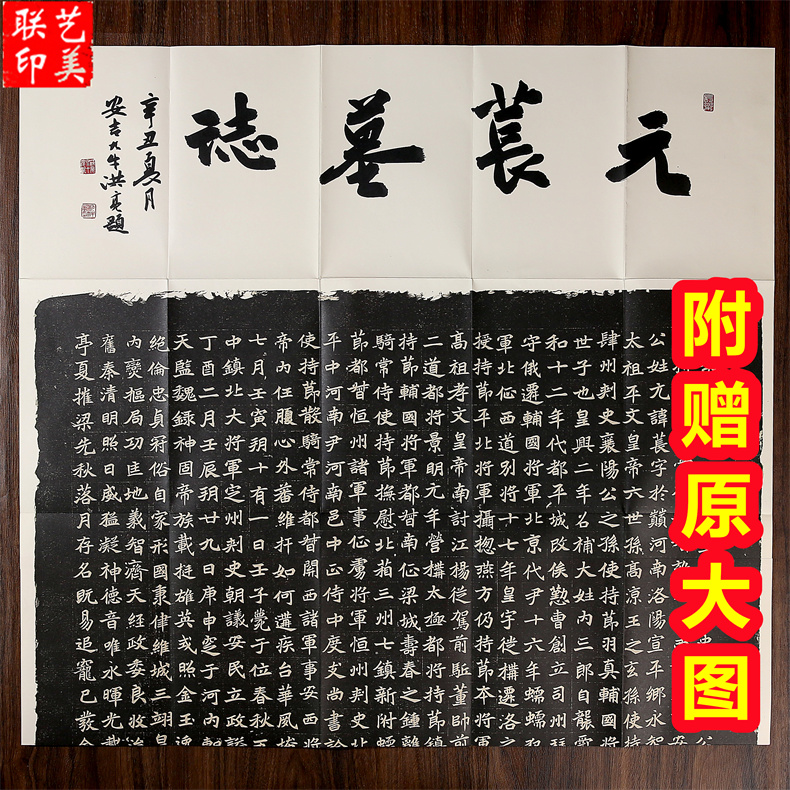 艺美
联印
元萇墓誌
辛丑夏月
安吉九牛洪亮題
附赠原大图
公姓元諱萇字於巔河南洛陽宣平鄉永智
太祖平文皇帝六世孫高涼王之玄孫使持
肆州刾史襄陽公之孫使持莭羽真輔國將
世子也皇興二年名補大姓内三郎自襲爵
和十二年代都平城改俟懃曹創立司州拜
守俄遷輔國將軍北京代尹十六年蠕蠕犯
軍北征西道別將十七年皇宇徙構遷洛之
授持莭平北將軍攝揔燕方仍持莭本將軍
髙祖孝文皇帝南討江楊從駕前駈董帥前
二道都將景明元年營構太極都將持莭鎮
持莭輔國將軍都督南征梁城壽春之鍾離
騎常侍使持莭撫慰北蕃三州七鎮新附蠕
莭都督恒州諸軍事征虜將軍恒州刾史北
平中河南尹河南邑中正侍中度支尚書
使持莭散騎常侍都督開西諸軍事安西將
帝内任腹心外蕃維扞如何遘疾台華風掩
七月壬寅玥十有一日壬子薨于位春秋五
中鎮北大將軍之州刾史朝議安民立政諡
丁酉二月壬辰玥廿九日庚申窆于河内朝
天監魏録神固帝族載挺雄英或照金玉逸
絶倫忠貞冠俗自家形國秉律維城三翊皇
内奱樞局功匡地羲智濟天經政委良收治
舊秦清明照日威猛凝神德音唯永暉光載
亭夏摧梁先秋落月存名旣易追寵已裝令